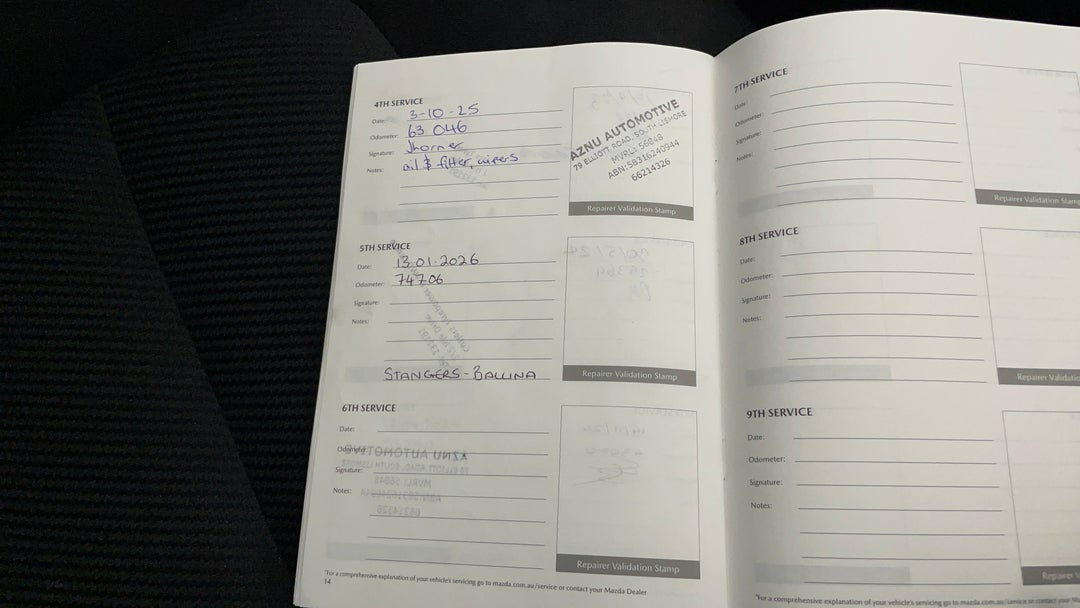 4TH SERVICE
Date: 3-10-25
Odometer: 63 046
Signature: Jhorner
Notes: oil & filter, wipers
AZNU AUTOMOTIVE
79 ELLIOTT ROAD, SOUTH LISMORE
MVRL: 56848
ABN:58316240944
66214326
Repairer Validation Stamp
5TH SERVICE
Date: 13.01.2026
Odometer: 74706
Signature:
Notes:
STANGERS - BALLINA
Repairer Validation Stamp
6TH SERVICE
Date:
Odometer:
Signature:
Notes:
Repairer Validation Stamp
*For a comprehensive explanation of your vehicle's servicing go to mazda.com.au/service or contact your Mazda Dealer
14
7TH SERVICE
Date:
Odometer:
Signature:
Notes:
Repairer Validation Stamp
8TH SERVICE
Date:
Odometer:
Signature:
Notes:
Repairer Validation
9TH SERVICE
Date:
Odometer:
Signature:
Notes:
Repairer
*For a comprehensive explanation of your vehicle's servicing go to mazda.com.au/service or contact your